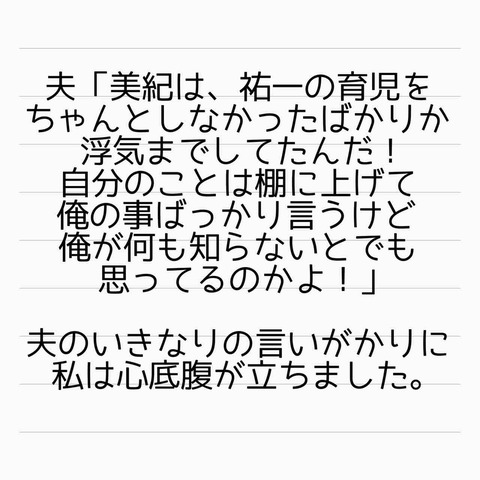 夫「美紀は、祐一の育児を
ちゃんとしなかったばかりか
浮気までしてたんだ！
自分のことは棚に上げて
俺の事ばっかり言うけど
俺が何も知らないとでも
思ってるのかよ！」
夫のいきなりの言いがかりに
私は心底腹が立ちました。